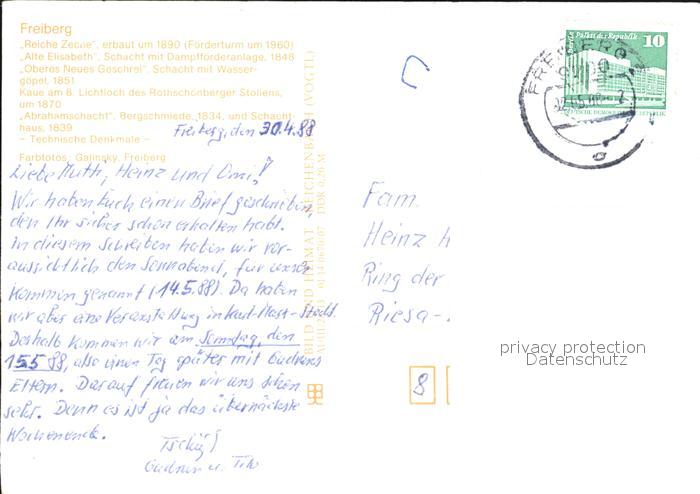 Freiberg
„Reiche Zeche“, erbaut um 1890 (Förderturm um 1960)
„Alte Elisabeth“, Schacht mit Dampfförderanlage, 1848
„Oberes Neues Geschrei“, Schacht mit Wasser-
göpel, 1851
Kaue am 8. Lichtloch des Rothschönberger Stollens,
um 1870
„Abrahamschacht“, Bergschmiede, 1834, und Schacht-
haus, 1839
– Technische Denkmale –
Farbfotos: Galinsky, Freiberg
Freiberg, den 30.4.88
Liebe Mutti, Heinz und Omi!
Wir haben Euch einen Brief geschrieben,
den Ihr sicher schon erhalten habt.
In diesem Schreiben haben wir vor-
aussichtlich den Sonnabend, für unser
Kommen genannt (14.5.88). Da haben
wir aber eine Veranstaltung in Karl-Marx-Stadt.
Deshalb kommen wir am Sonntag, den
15.5.88, also einen Tag später mit Gudruns
Eltern. Darauf freuen wir uns schon
sehr. Denn es ist ja das übernächste
Wochenende.
Tschüß
Gudrun u. Tilo
BILD UND HEIMAT REICHENBACH (VOGTL)
DDR 0,20 M
10
Palast der Republik
FREIBERG
9200
Fam.
Heinz
Ring der
Riesa-
8
privacy protection
Datenschutz